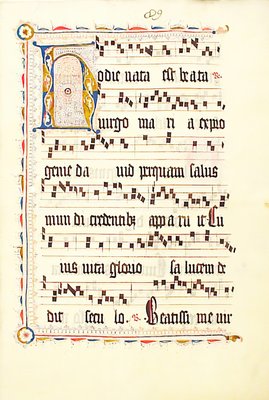 Hodie nata est beata
uirgo ma ri a ex pro
genie da uid per quam salus
mun di credentibꝫ appa ru it Cu
ius uita glorio sa lucem de
dit secu lo. ℣. Beatissi me uir